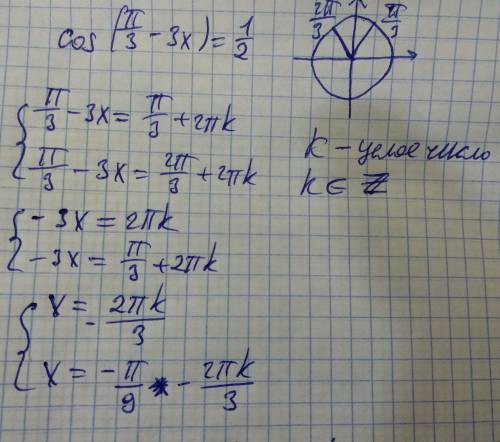 cos(π/3 - 3x) = 1/2
2π/3 π/3
{ π/3 - 3x = π/3 + 2πk
π/3 - 3x = 2π/3 + 2πk
k - целое число
k ∈ Z
{ - 3x = 2πk
- 3x = π/3 + 2πk
{ x = - 2πk/3
x = - π/9 - 2πk/3